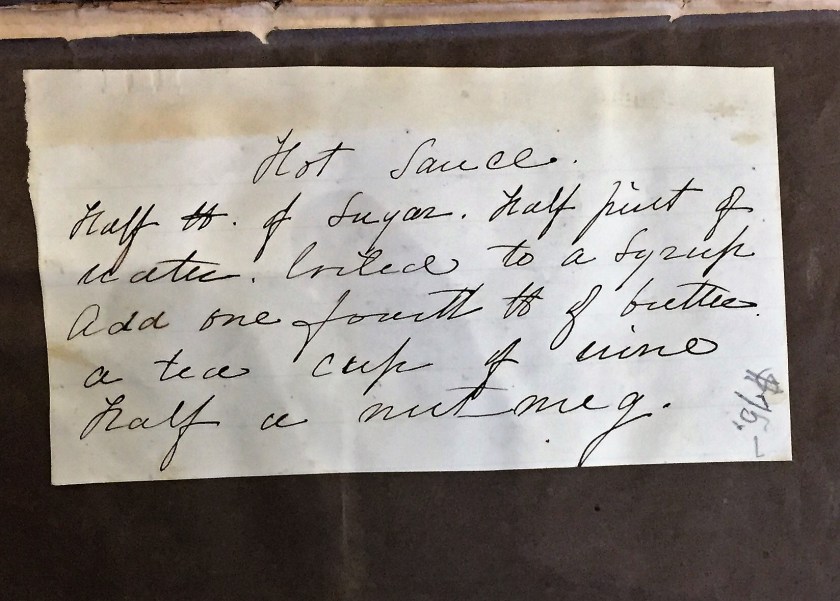 Hot Sauce.
Half ℔. of Sugar. Half pint of
water. boiled to a Syrup
Add one fourth ℔ of butter.
a tea cup of wine
half a nutmeg.
$75.-